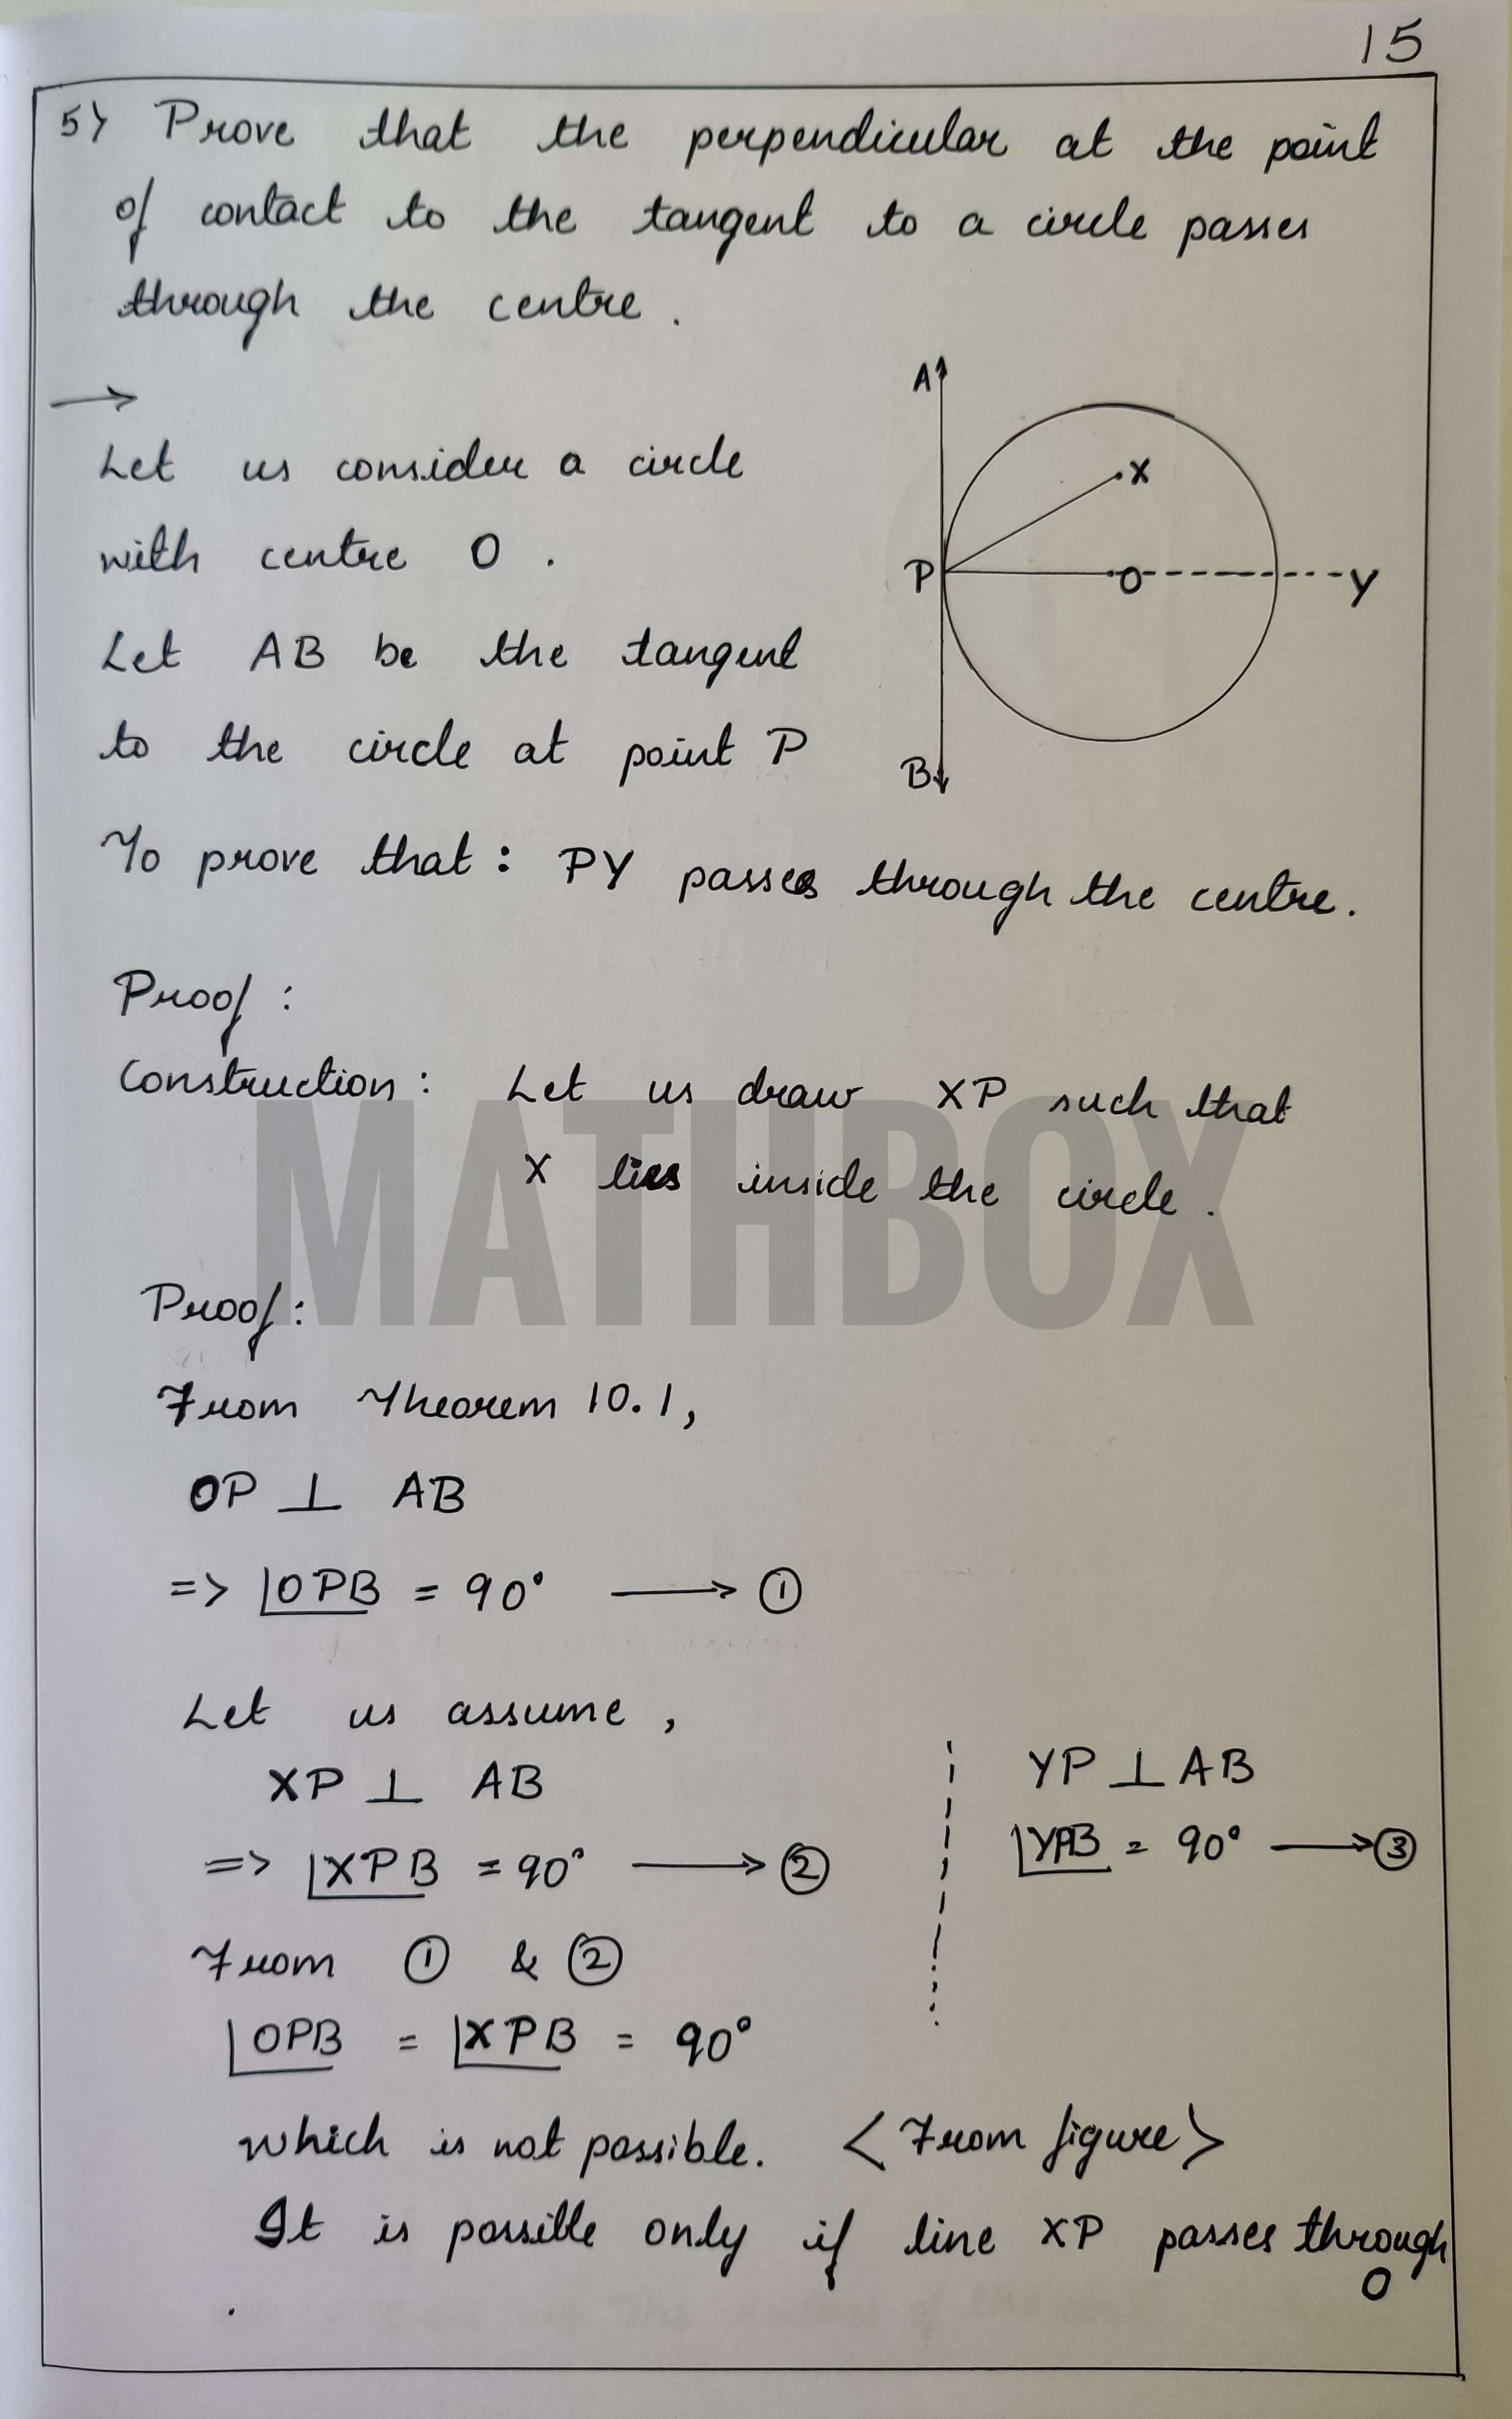 15
5) Prove that the perpendicular at the point
of contact to the tangent to a circle passes
through the centre.
→
Let us consider a circle
with centre O.
Let AB be the tangent
to the circle at point P
A
X
P
O
Y
B
To prove that: PY passes through the centre.
Proof:
Construction: Let us draw XP such that
X lies inside the circle.
MATHBOX
Proof:
From Theorem 10.1,
OP ⊥ AB
=> ∠OPB = 90° → ①
Let us assume,
XP ⊥ AB
=> ∠XPB = 90° → ②
YP ⊥ AB
∠YPB = 90° → ③
From ① & ②
∠OPB = ∠XPB = 90°
which is not possible. <From figure>
It is possible only if line XP passes through
O